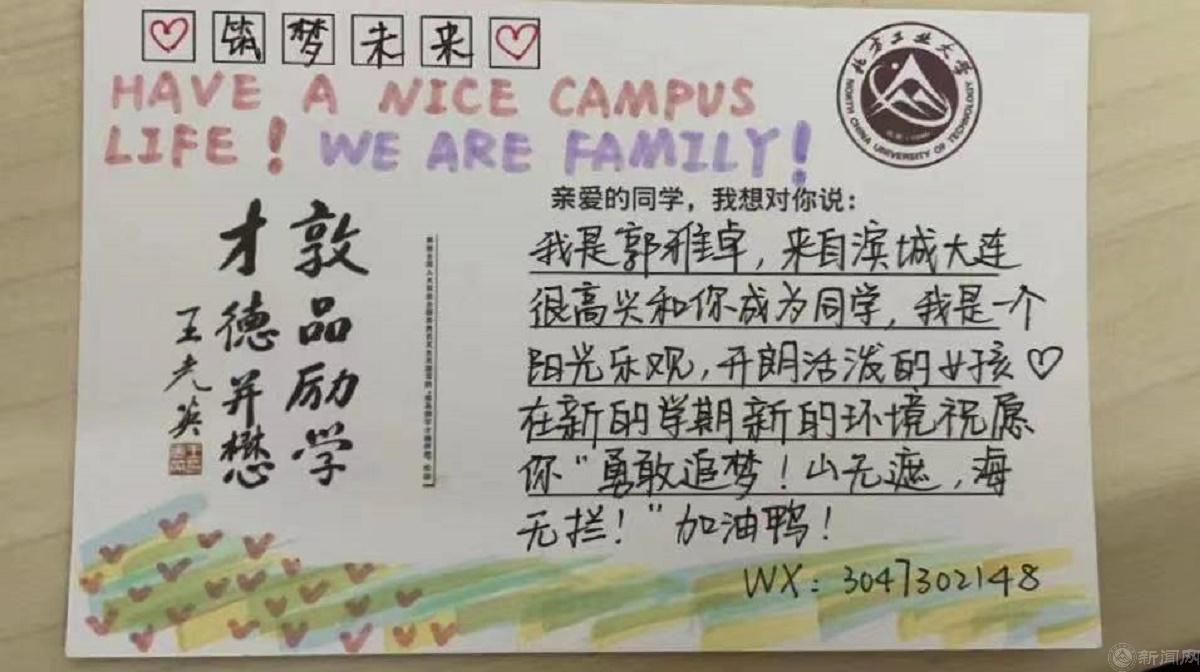 筑梦未来
HAVE A NICE CAMPUS
LIFE! WE ARE FAMILY!
北方工业大学
NORTH CHINA UNIVERSITY OF TECHNOLOGY
敦品励学
才德并懋
王光英
亲爱的同学，我想对你说：
我是郭雅卓，来自滨城大连
很高兴和你成为同学，我是一个
阳光乐观，开朗活泼的女孩♡
在新的学期新的环境祝愿
你“勇敢追梦！山无遮，海
无拦！”加油鸭！
WX：3047302148
新闻网